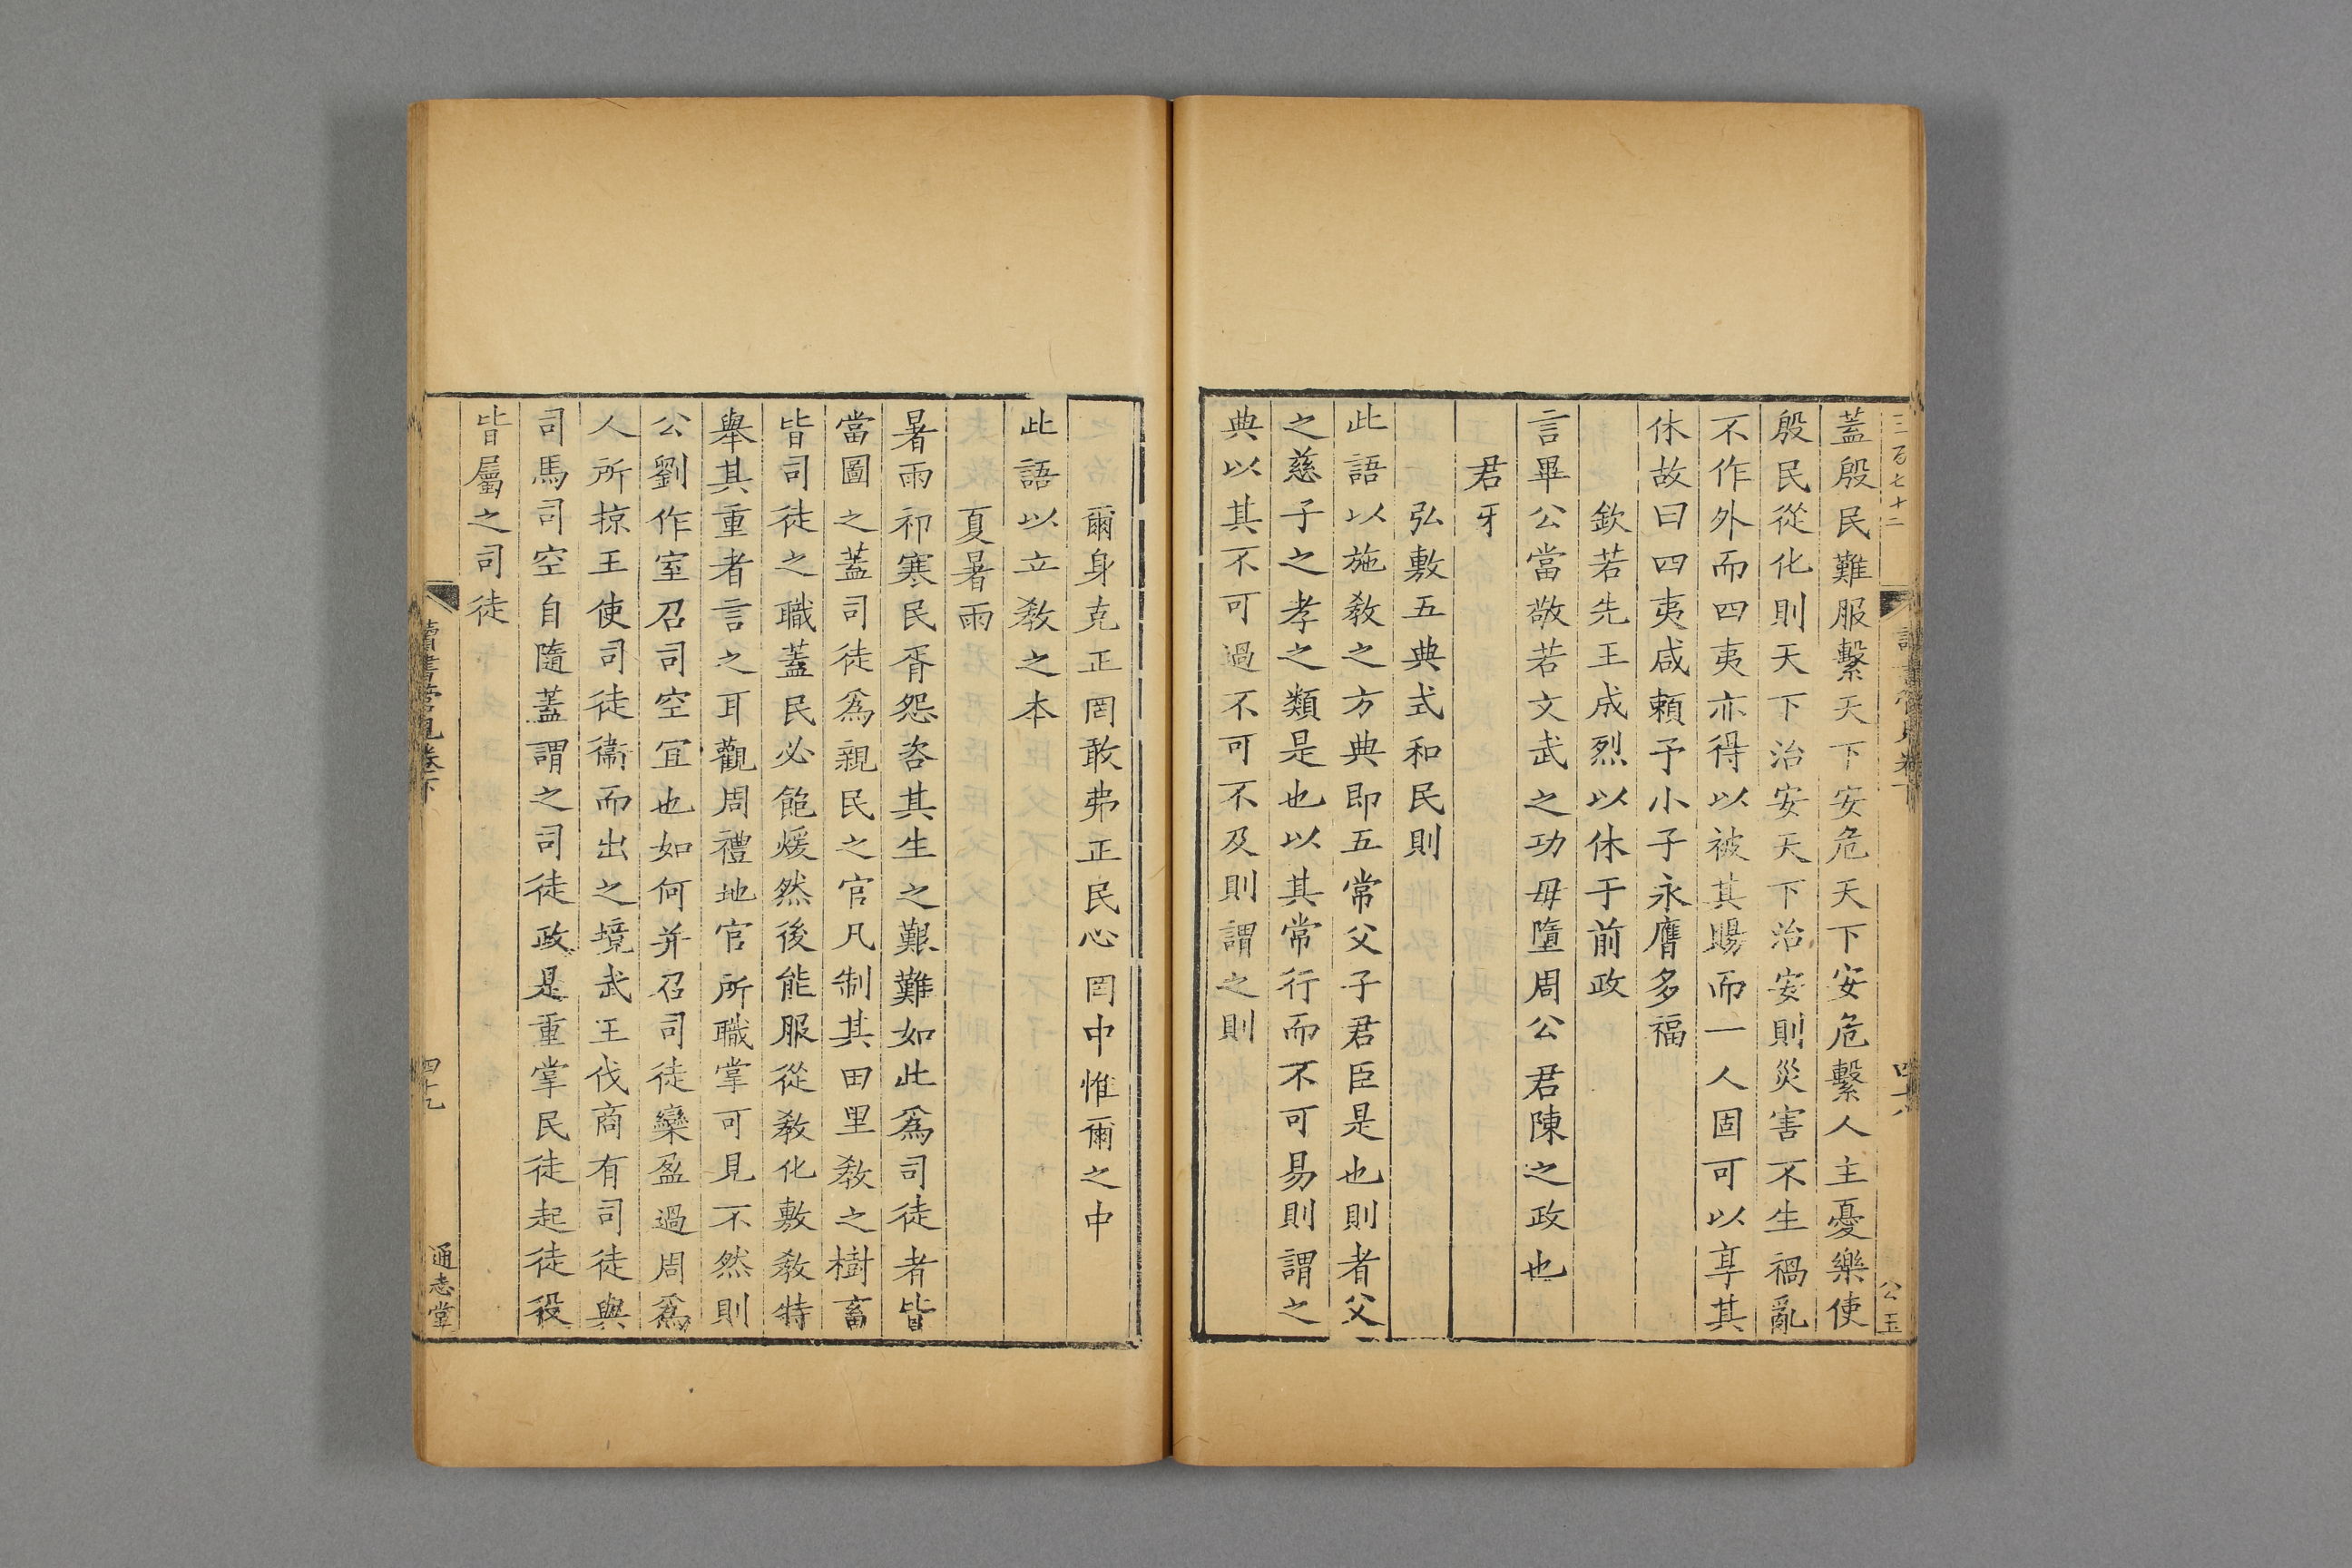 三百七十二
公玉
蓋殷民難服繫天下安危天下安危繫人主憂樂使
殷民從化則天下治安天下治安則災害不生禍亂
不作外而四夷亦得以被其賜而一人固可以享其
休故曰四夷咸賴予小子永膺多福
欽若先王成烈以休于前政
言畢公當敬若文武之功毋墮周公君陳之政也
君牙
弘敷五典式和民則
此語以施敎之方典即五常父子君臣是也則者父
之慈子之孝之類是也以其常行而不可易則謂之
典以其不可過不可不及則謂之則
爾身克正罔敢弗正民心罔中惟爾之中
此語以立敎之本
夏暑雨
暑雨祁寒民胥怨咨其生之艱難如此爲司徒者皆
當圖之蓋司徒爲親民之官凡制其田里敎之樹畜
皆司徒之職蓋民必飽煖然後能服從敎化敷敎特
舉其重者言之耳觀周禮地官所職掌可見不然則
公劉作室召司空宜也如何并召司徒欒盈過周爲
人所掠王使司徒衞而出之境武王伐商有司徒與
司馬司空自隨蓋謂之司徒政是重掌民徒起徒役
皆屬之司徒
讀書管見卷下
四十九
通志堂